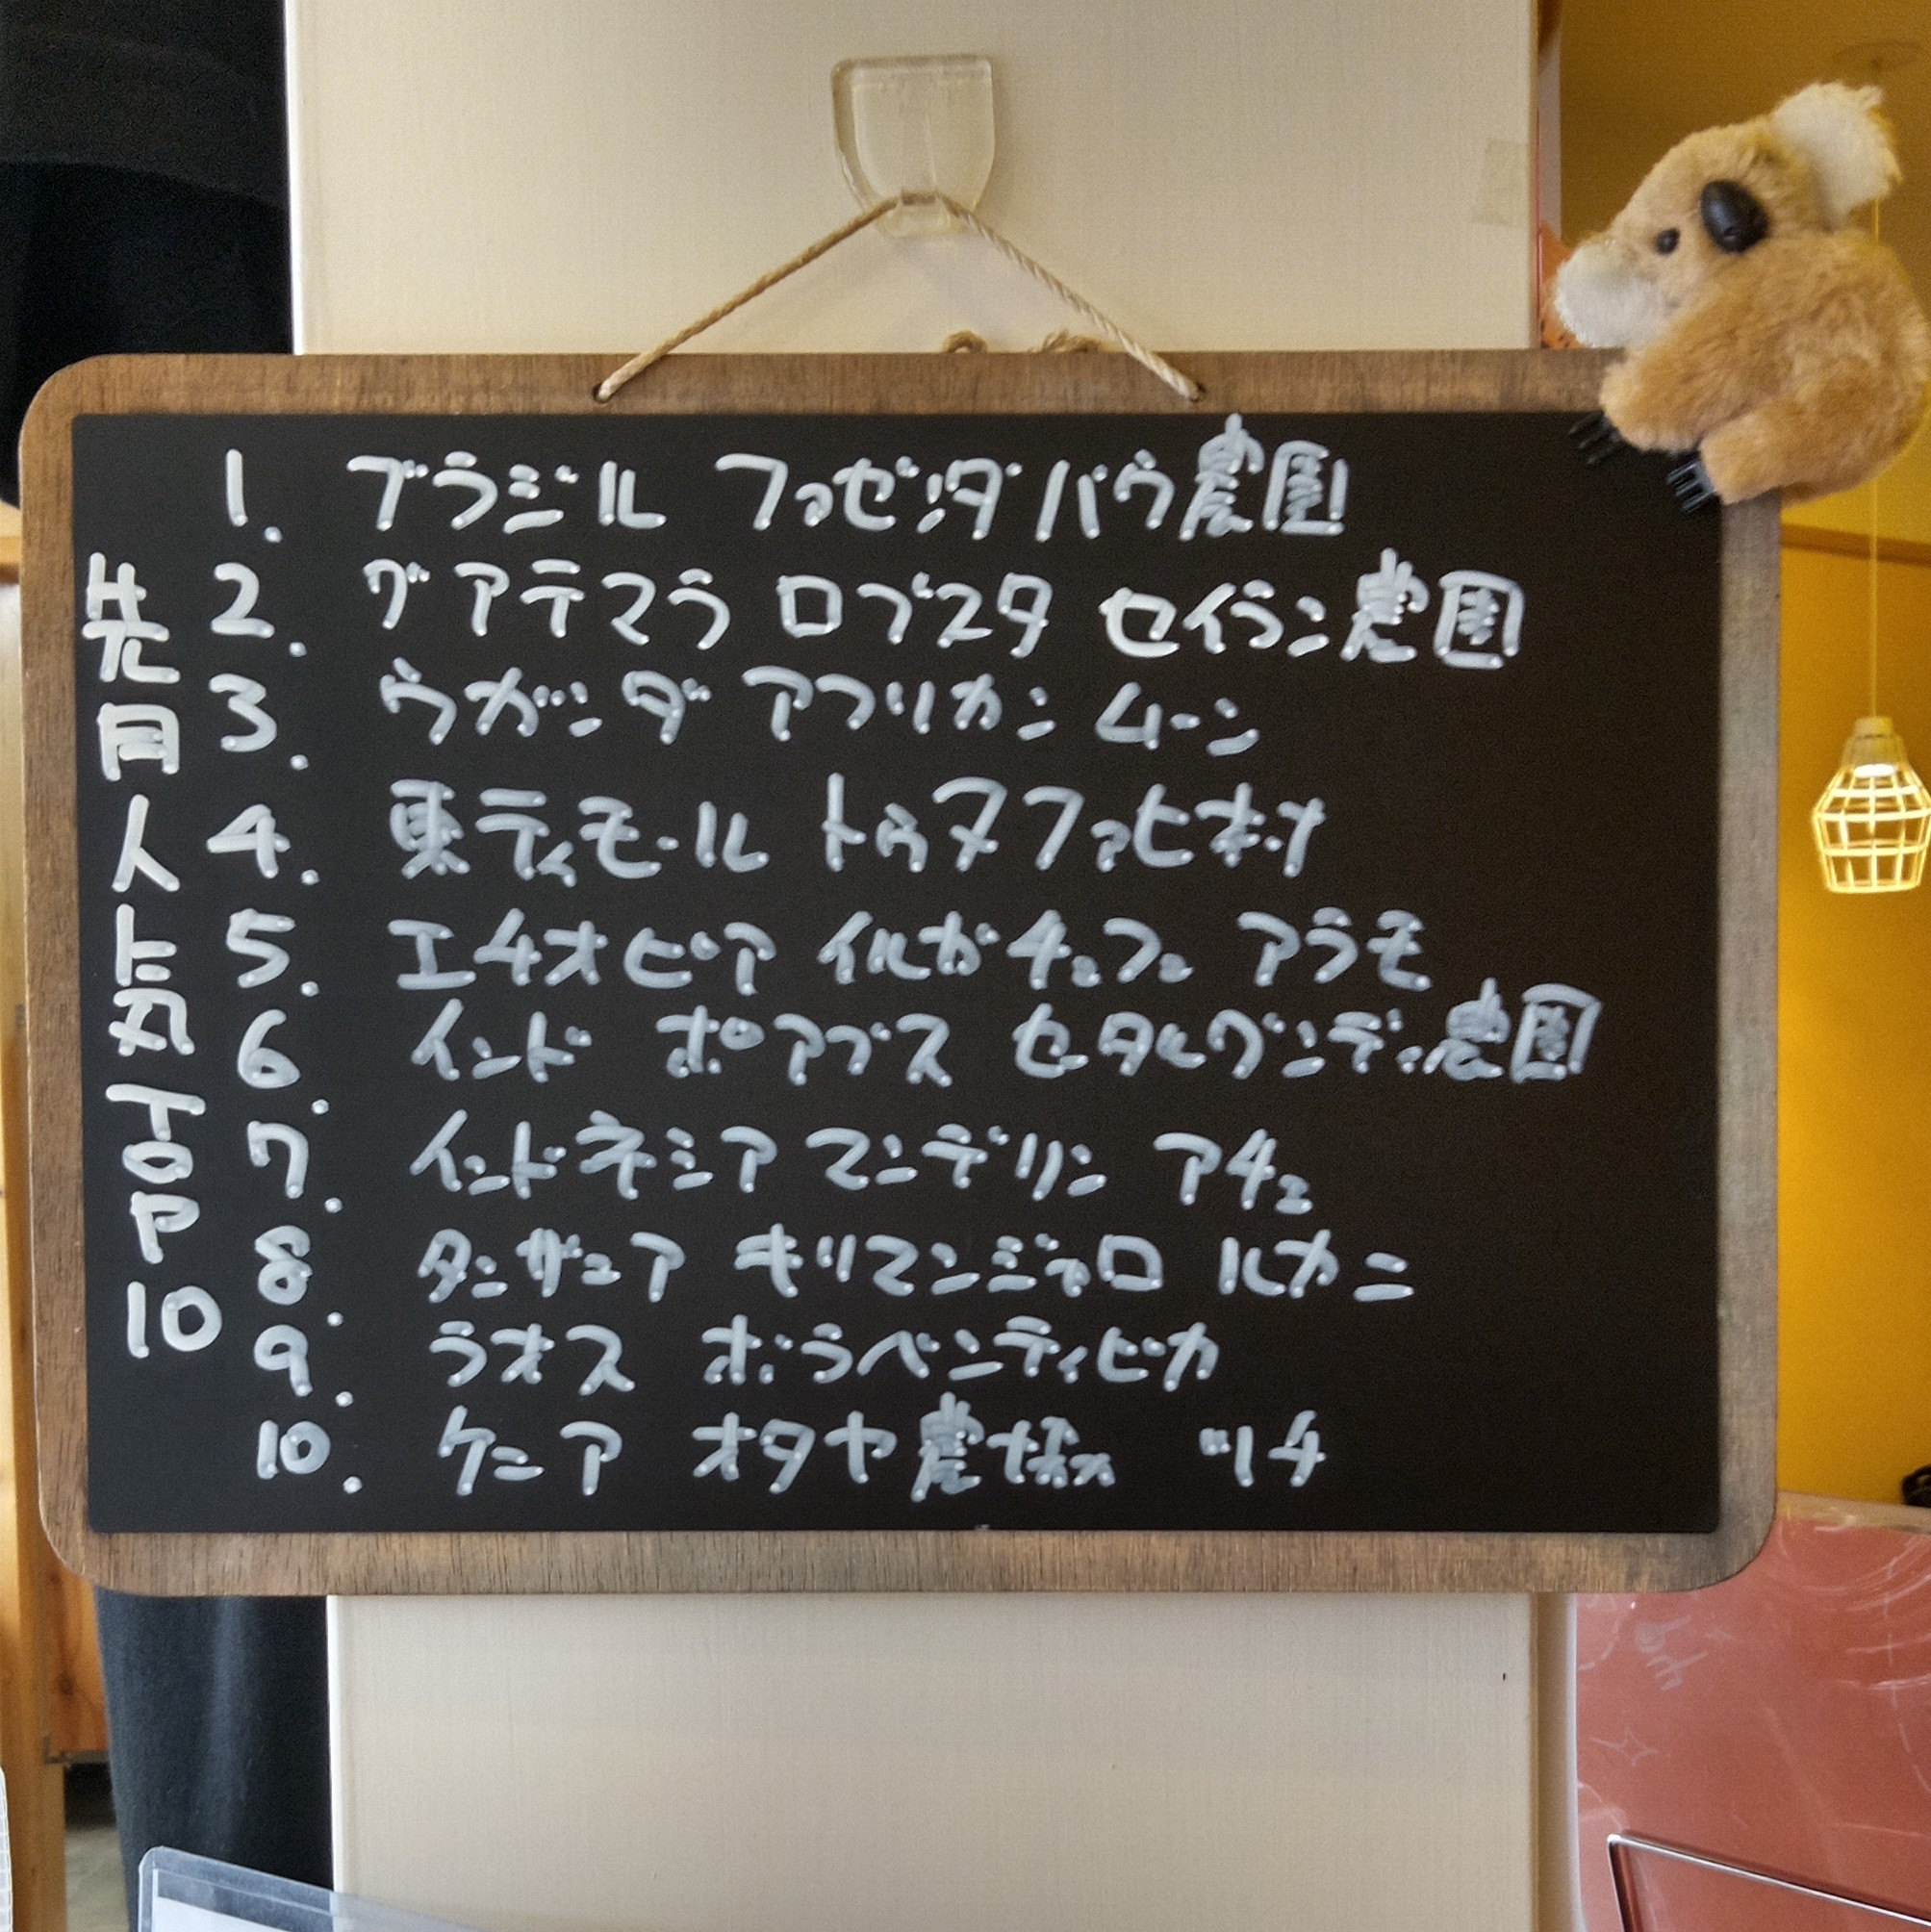 先月人気TOP10
1. ブラジル ファゼンダバウ農園
2. グアテマラ ロブスタ セイラン農園
3. ウガンダ アフリカン ムーン
4. 東ティモール トゥヌファヒ村
5. エチオピア イルガチェフェ アラモ
6. インド ポアブス セータルグンディ農園
7. インドネシア マンデリン アチェ
8. タンザニア キリマンジャロ ルカニ
9. ラオス ボラベンティピカ
10. ケニア オタヤ農協 ツチ